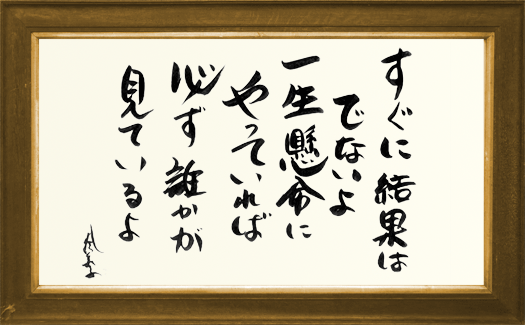 すぐに結果は
でないよ
一生懸命に
やっていれば
必ず誰かが
見ているよ